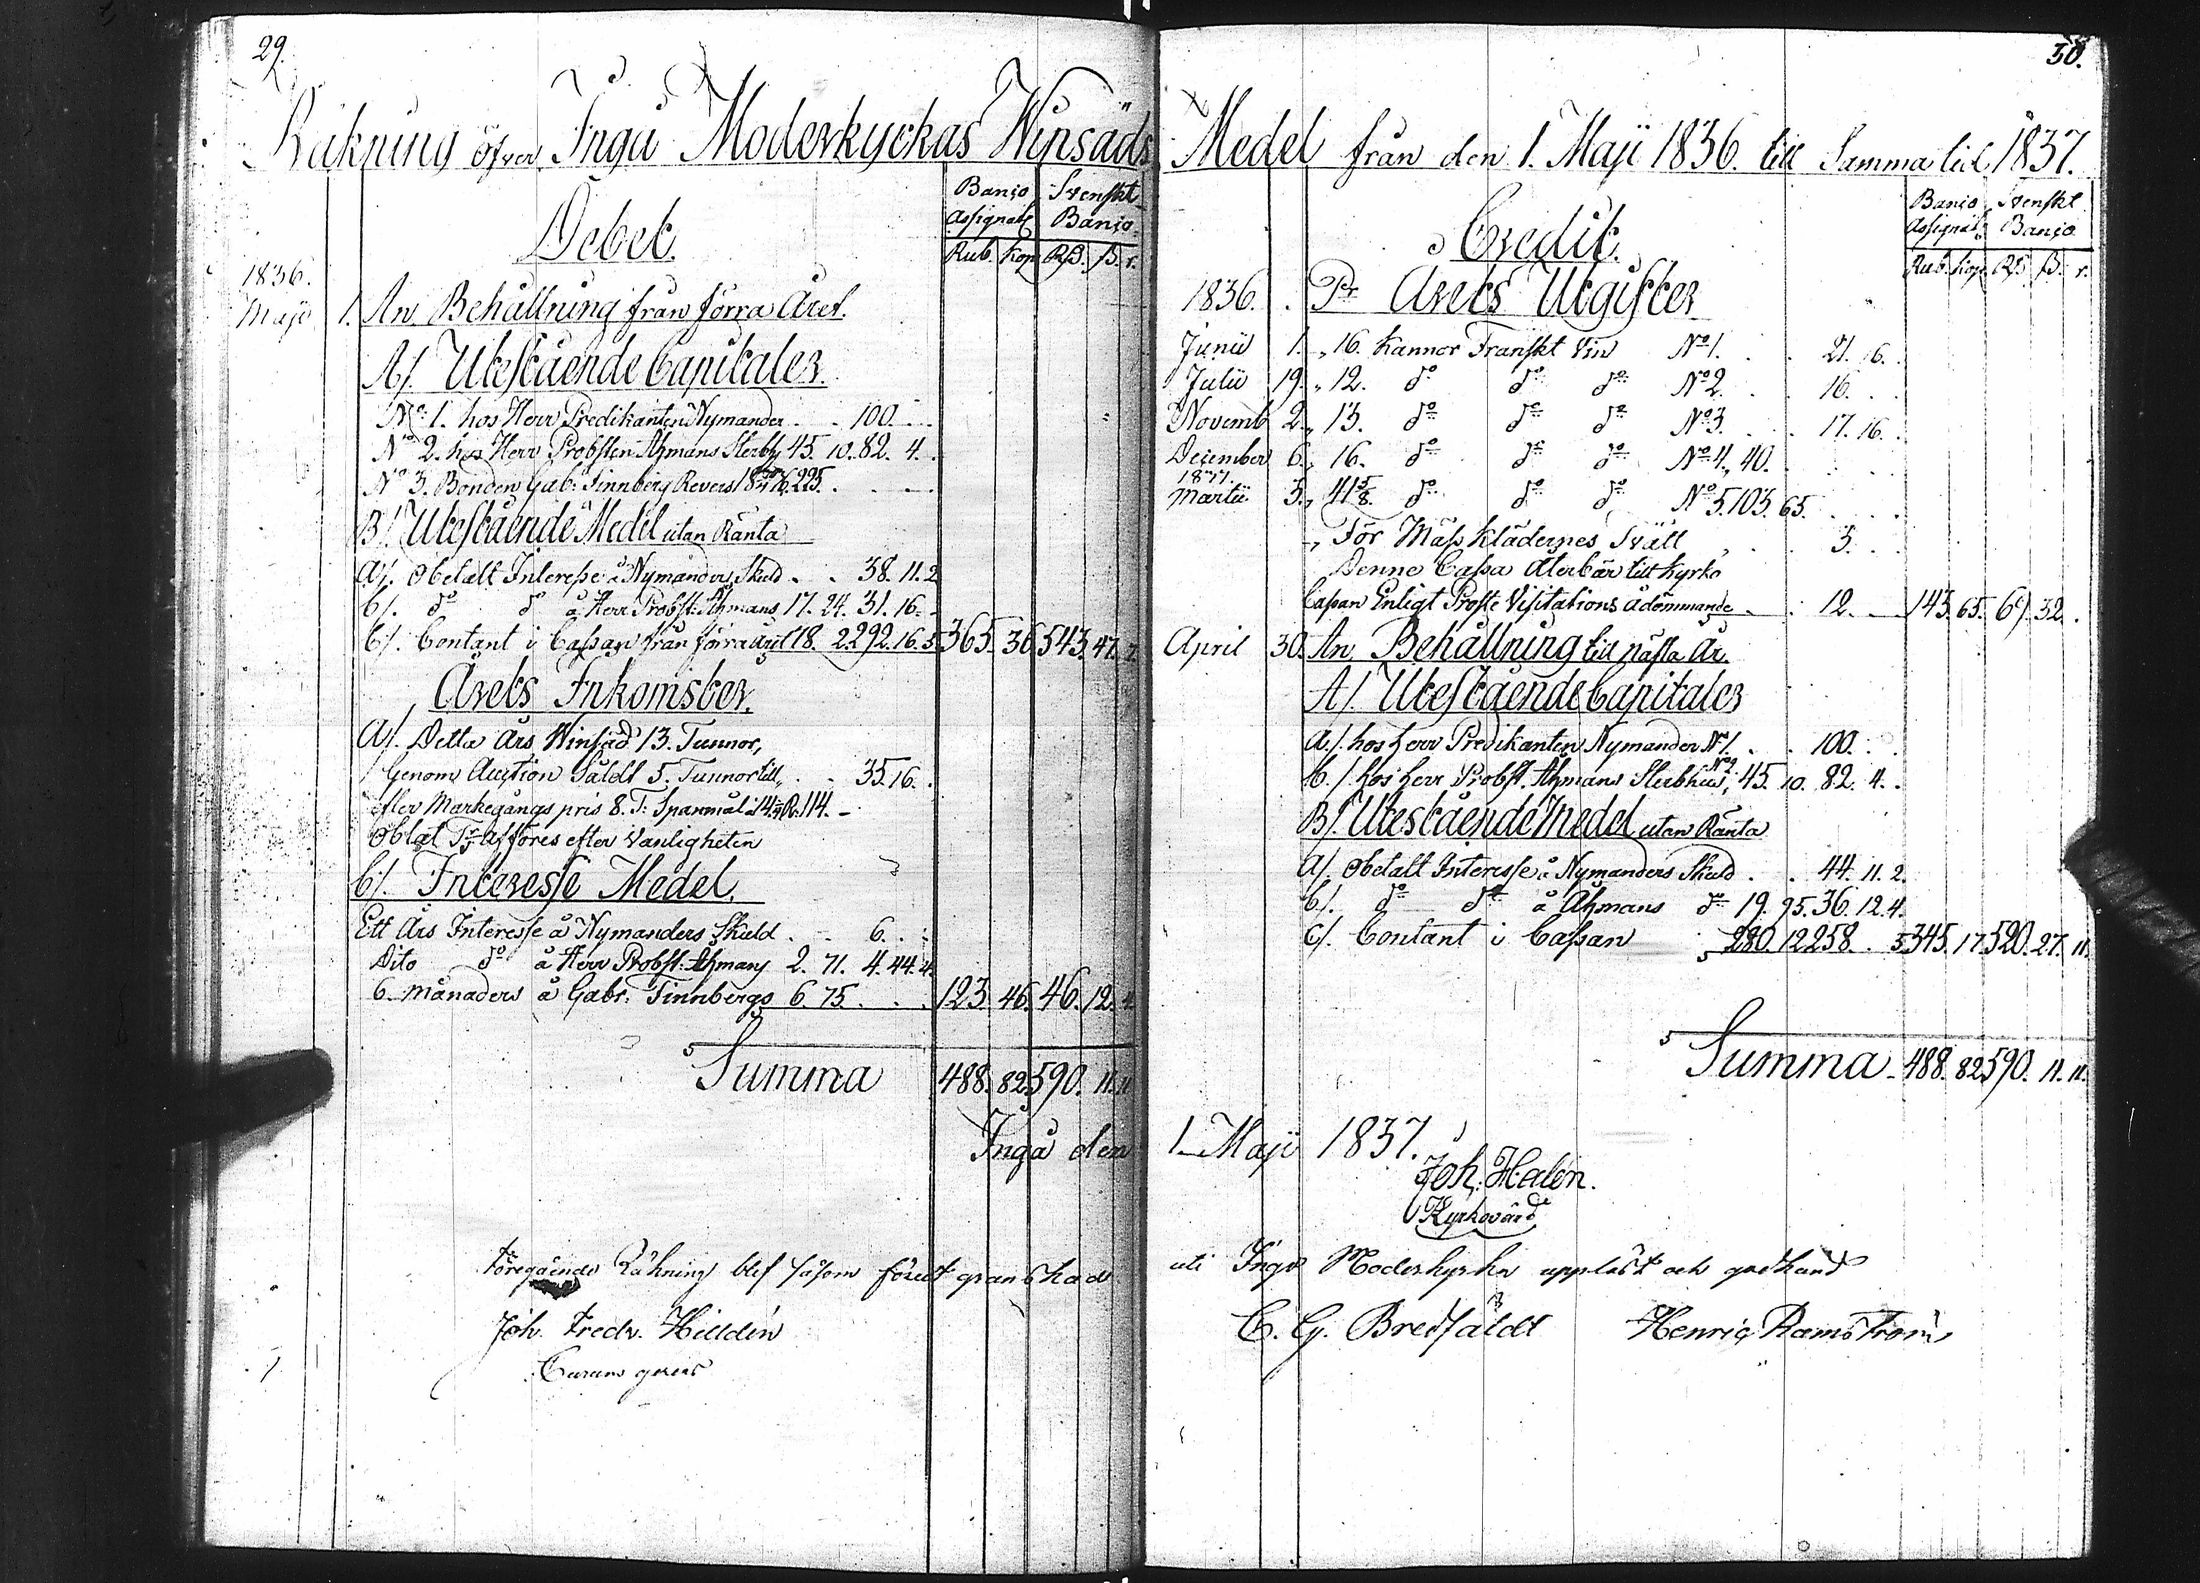 29.
Räkning öfver Ingå Moderkyrkas Winsäds
Banço Svenskt
Assignat. Banço.
Debet.
Rub. Kop. Rd. ß. r.
1836.
Maji 1. An Behållning från förra Året.
A/. Utestående Capitaler.
No 1. hos Herr Predikanten Nymander . . 100. . .
No 2. hos Herr Probsten Åhmans Sterbh. 45. 10. 82. 4. .
No 3. Bonden Gab: Finnberg Revers 225. . . .
B/. Utestående Medel utan Ränta
a/. Obetalt Interesse å Nymanders Skuld . . 38. 11. 2
b/. do do å Herr Probst: Åhmans 17. 24. 31. 16. .
C/. Contant i Cassan från förra året 18. 2. 292. 16. 5. 365. 36. 543. 47. 7.
Årets Inkomster.
A/. Detta Års Winsäd 13. Tunnor,
Genom Auction Såldt 5. Tunnor till . . 35. 16. .
efter Markegångs pris 8. T: Spanmål 114. —
Oblat Tn afföres efter Vanligheten
b/. Interesse Medel.
Ett Års Interesse å Nymanders Skuld . . 6. . .
Dito do å Herr Probst: Åhmans 2. 71. 4. 44. 4.
6. månaders å Gabr: Finnbergs 6. 75. . . . 123. 46. 46. 12. 4.
Summa 488. 82. 590. 11. 11
Ingå den
Föregående Räkning blef såsom förut granskad
Joh. Fredr. Hilldén
Curam gerens
30.
Medel från den 1. Maji 1836. till Samma tid 1837.
Banço Svenskt
Assignat. Banço
Credit.
Rub. Kop. Rd ß. r.
1836. . Pr Årets Utgifter
Junii 1. „ 16. Kannor Franskt Vin No 1. . . 21. 16. .
Julii 19. „ 12. do do do No 2. . . 16. . .
Novemb 2. „ 13. do do do No 3. . . 17. 16. .
December 6. „ 16. do do do No 4. „ 40. . . .
1837.
Martii 3. „ 41 5/8. do do do No 5. 103. 65. . . .
„ För Mässklädernes Tvätt . . 3. . .
Denne Cassa Återbär till Kyrko
Cassan Enligt Proste Visitations ådömmande . . 12. — 143. 65. 69. 32. .
April 30. An Behållning till nästa År.
A/. Utestående Capitaler
a./. hos herr Predikanten Nymander No 1. . . 100. . .
b./. hos herr Probst. Åhmans Sterbhus, No 2 45. 10. 82. 4. .
B/. Utestående Medel utan Ränta
a/. Obetalt Interesse å Nymanders Skuld . . 44. 11. 2.
b/. do do å Åhmans do 19. 95. 36. 12. 4.
C/. Contant i Cassan 280. 12 258. . 5 345. 17 520. 27. 11.
Summa 488. 82 590. 11. 11.
1. Maji 1837.
Joh. Halén.
Kyrkovärd
uti Ingå Moderkyrka uppläst och godkänd
C. G. Bredsäldt Henric Ramström